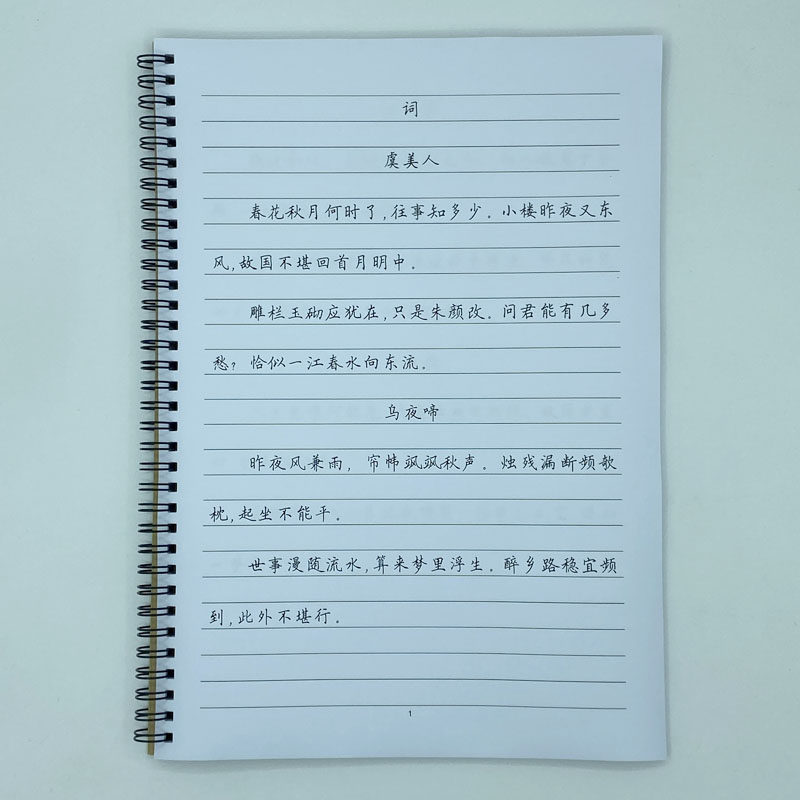 词
虞美人
春花秋月何时了,往事知多少。小楼昨夜又东
风,故国不堪回首月明中。
雕栏玉砌应犹在,只是朱颜改。问君能有几多
愁?恰似一江春水向东流。
乌夜啼
昨夜风兼雨,帘帏飒飒秋声。烛残漏断频欹
枕,起坐不能平。
世事漫随流水,算来梦里浮生。醉乡路稳宜频
到,此外不堪行。
1